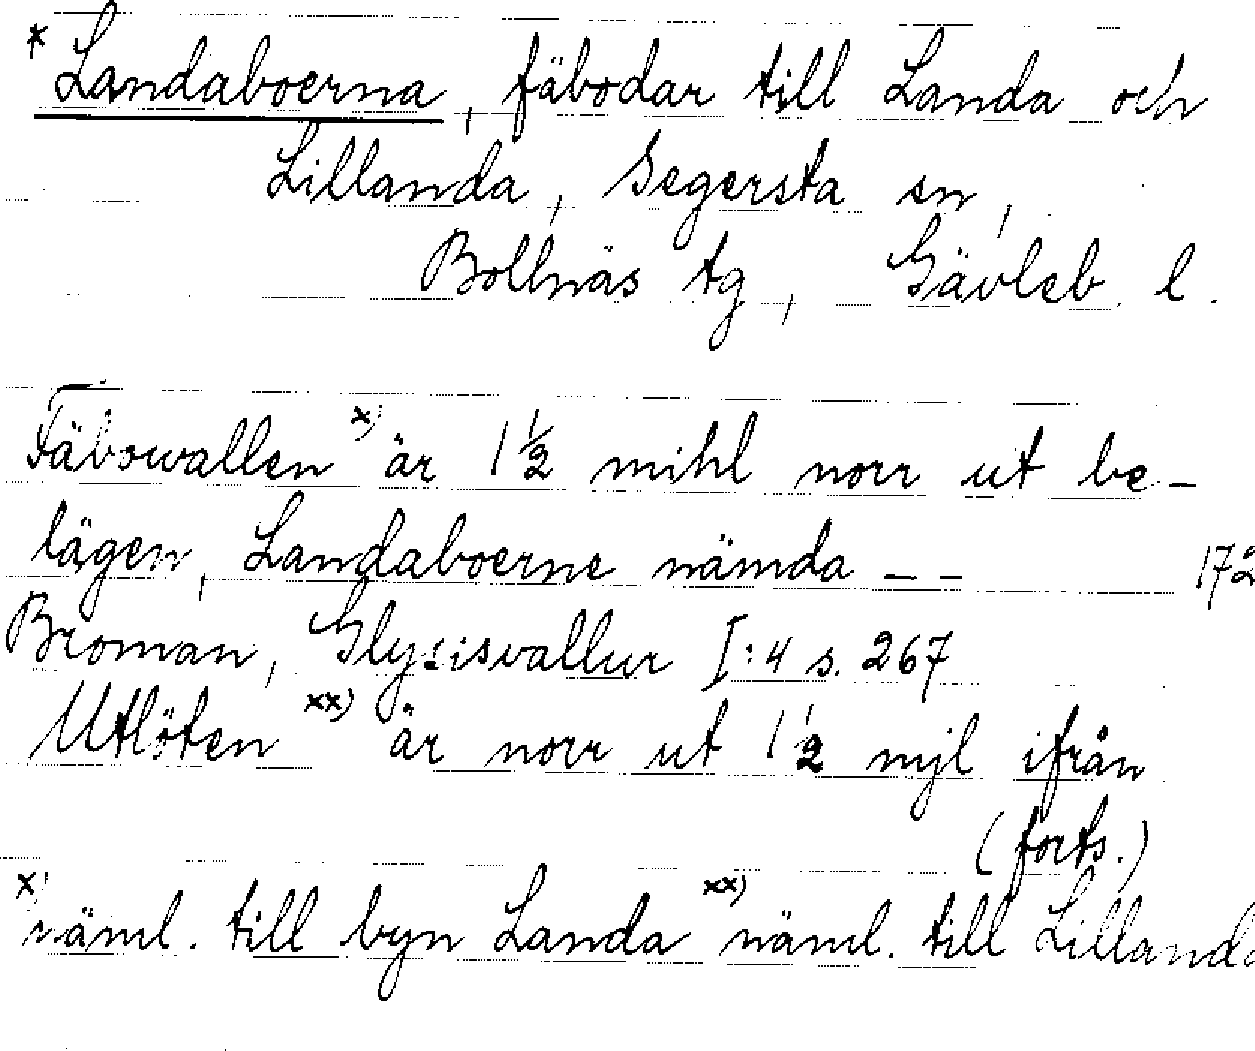 * Landaboerna, fäbodar till Landa och
Lillanda, Segersta sn,
Bollnäs tg, Gävleb. l.
Fäbowallen x) är 1 1/2 mihl norr ut be-
lägen, Landaboerne nämda _ _ 172
Broman, Glysisvallur I:4 s. 267
Utlöten xx) är norr ut 1 1/2 mjl ifrån
(forts.)
x) näml. till byn Landa xx) näml. till Lillanda